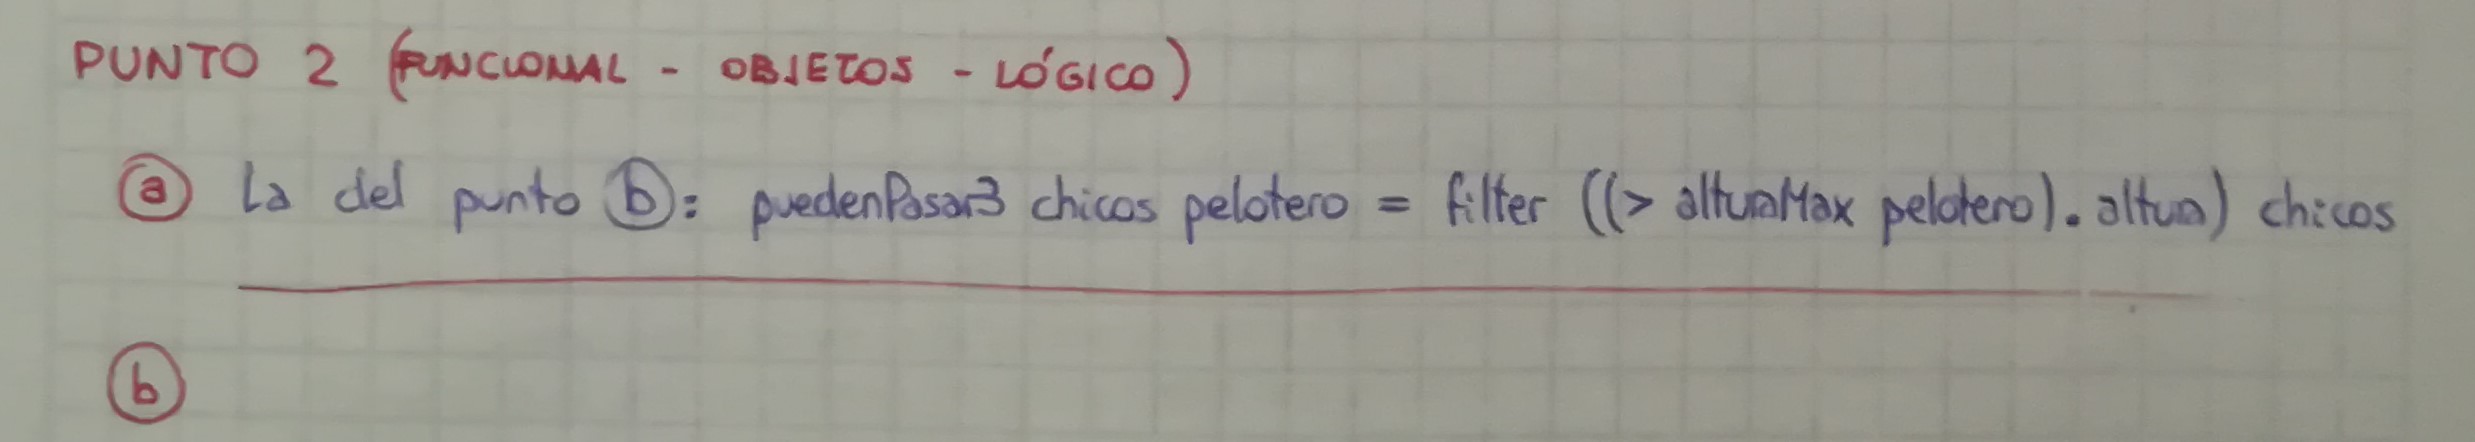 PUNTO 2 (FUNCIONAL - OBJETOS - LÓGICO)
a La del punto b: puedenPasar3 chicos pelotero = filter ((> alturaMax pelotero). altura) chicos
b